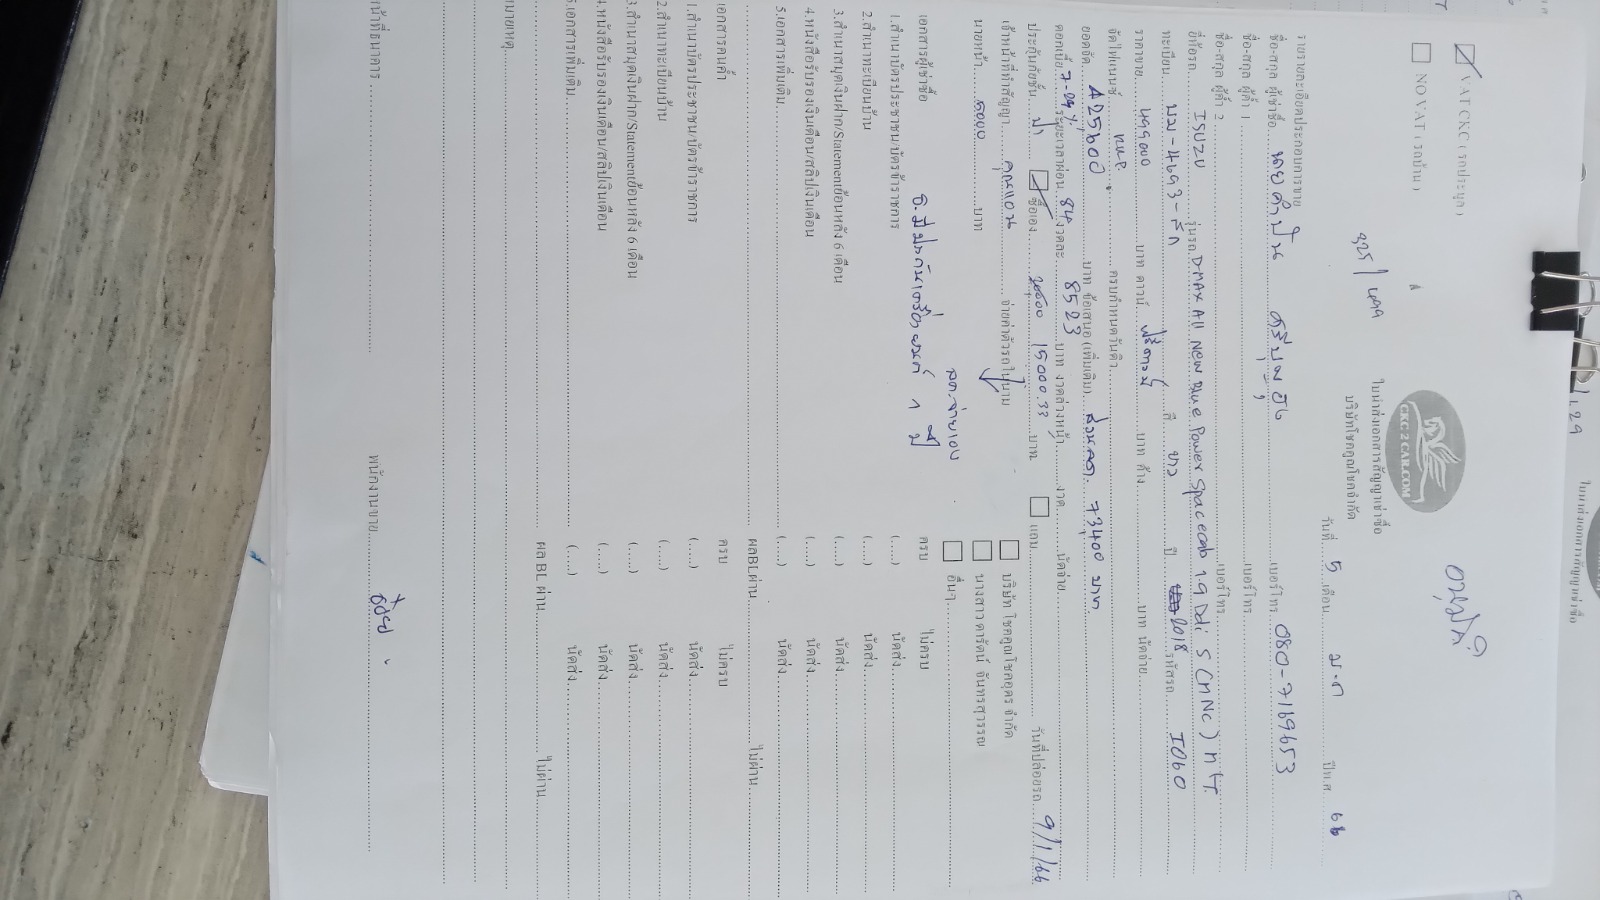 VAT CKC ( รถประมูล )
NO VAT ( รถบ้าน )
325 / 499
อนุมัติ
CKC2CAR.COM
ใบนำส่งเอกสารสัญญาเช่าซื้อ
บริษัทโชคคูณโชคจำกัด
วันที่ 5 เดือน ม.ค ปีพ.ศ 66
รายรายละเอียดประกอบการขาย
ชื่อ-สกุล ผู้เช่าซื้อ นายคำปัน เบอร์โทร 080-7169653
ชื่อ-สกุล ผู้ค้ำ 1 เบอร์โทร
ชื่อ-สกุล ผู้ค้ำ 2 เบอร์โทร
ยี่ห้อรถ ISUZU รุ่นรถ D-MAX All New Blue Power Spacecab 1.9 Ddi S (MNC) MT
ทะเบียน สี ขาว ปี 2018 รหัสรถ I060
ราคาขาย 499000 บาท ดาวน์ ฟรีดาวน์ บาท ค้าง บาท นัดจ่าย
จัดไฟแนนซ์ ครบกำหนดวันคิว
ยอดจัด 425600 บาท ข้อเสนอ (เพิ่มเติม) ส่วนลด 73400 บาท
ดอกเบี้ย 7.09% ระยะเวลาผ่อน 84 งวดละ 8523 บาท งวดล่วงหน้า งวด นัดจ่าย
ประกันภัยชั้น ซื้อเอง 15000.33 บาท แถม วันที่ปล่อยรถ 9/1/66
เจ้าหน้าที่ทำสัญญา คุณแอน จ่ายค่าตัวรถในนาม บริษัท โชคคูณโชคอุดร จำกัด
นายหน้า 5000 บาท นางสาวดารัตน์ จันทรสุวรรณ
สด.จ่ายเอง อื่นๆ
เอกสารผู้เช่าซื้อ ครบ ไม่ครบ
1.สำเนาบัตรประชาชน/บัตรข้าราชการ (.....) นัดส่ง
2.สำเนาทะเบียนบ้าน (.....) นัดส่ง
3.สำเนาสมุดเงินฝาก/Statementย้อนหลัง 6 เดือน (.....) นัดส่ง
4.หนังสือรับรองเงินเดือน/สลิปเงินเดือน (.....) นัดส่ง
5.เอกสารเพิ่มเติม (.....) นัดส่ง
ผลBLผ่าน ไม่ผ่าน
เอกสารคนค้ำ ครบ ไม่ครบ
1.สำเนาบัตรประชาชน/บัตรข้าราชการ (.....) นัดส่ง
2.สำเนาทะเบียนบ้าน (.....) นัดส่ง
3.สำเนาสมุดเงินฝาก/Statementย้อนหลัง 6 เดือน (.....) นัดส่ง
4.หนังสือรับรองเงินเดือน/สลิปเงินเดือน (.....) นัดส่ง
5.เอกสารเพิ่มเติม (.....) นัดส่ง
ผล BL ผ่าน ไม่ผ่าน
หมายเหตุ
หน้าที่ธนาคาร พนักงานขาย